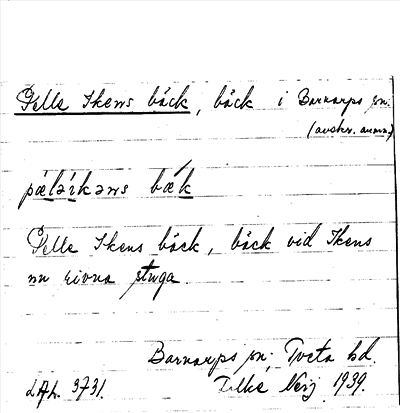 Pelle Ikens bäck, bäck i Barnarps sn.
(avskr. anm.)
pæləikəns bæk
Pelle Ikens bäck, bäck vid Ikens
nu rivna stuga.
Barnarps sn; Tveta hd.
LAL. 3731. 1939.